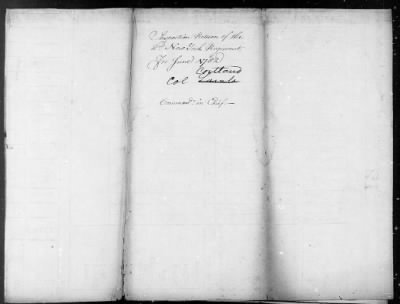 Inspection Return of the
2d New York Regiment
For June 1782
Cortland
Col
Command.r in Chief.—